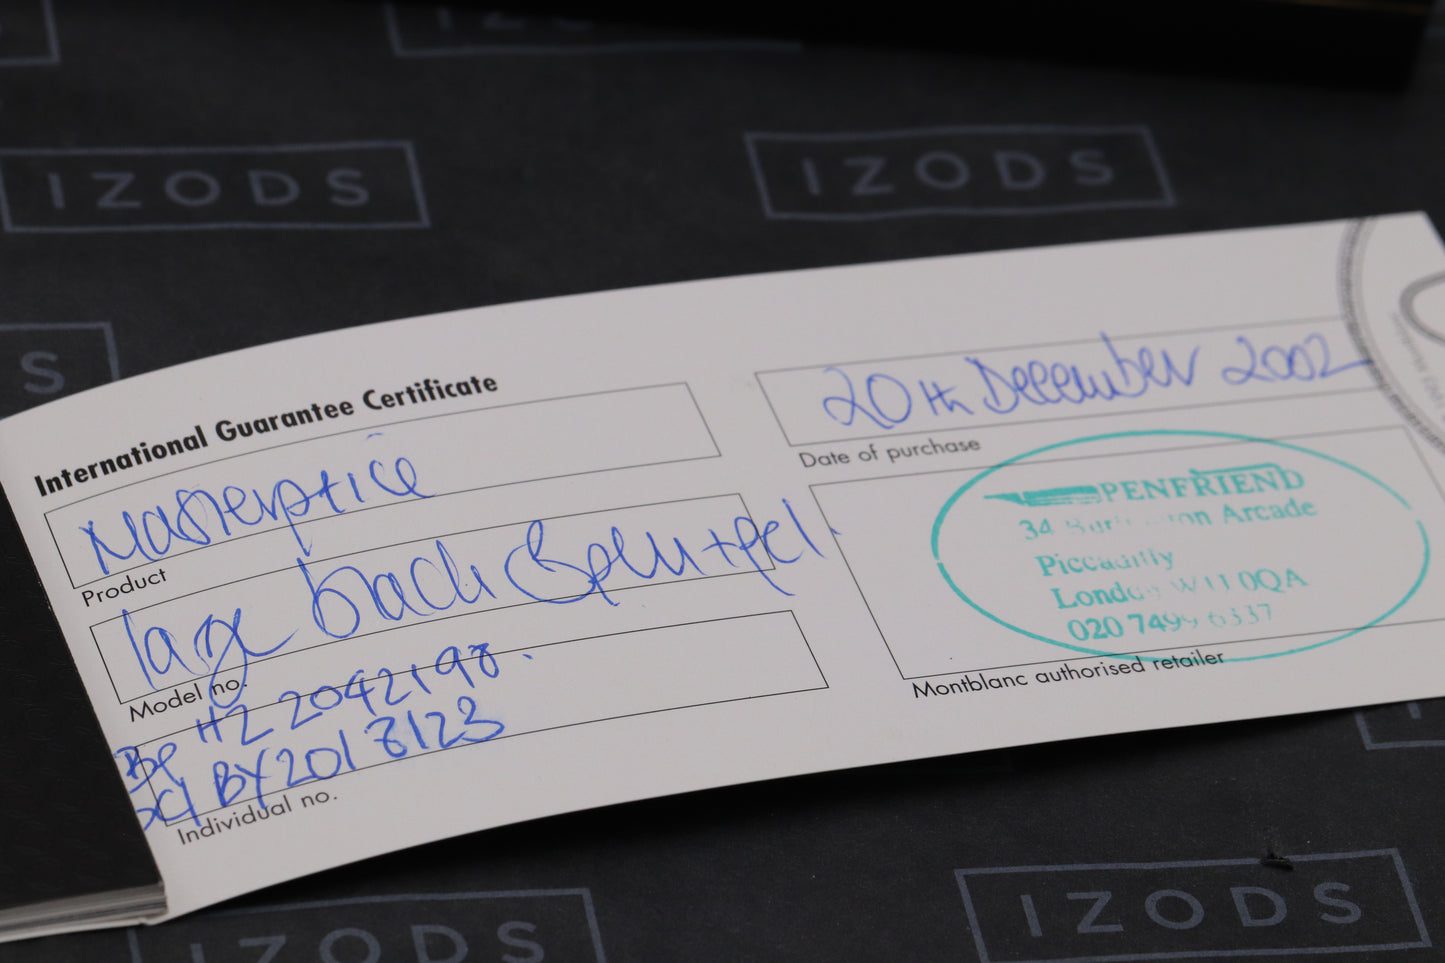 IZODS
IZODS
IZODS
S
International Guarantee Certificate
Product
large black Bp
Model no.
Bp HZ 2042198.
BY 2018123
Individual no.
20th December 2002
Date of purchase
PENFRIEND
34 Arcade
Piccadilly
London W1J 0QA
020 7499 6337
Montblanc authorised retailer
IZODS
IZODS